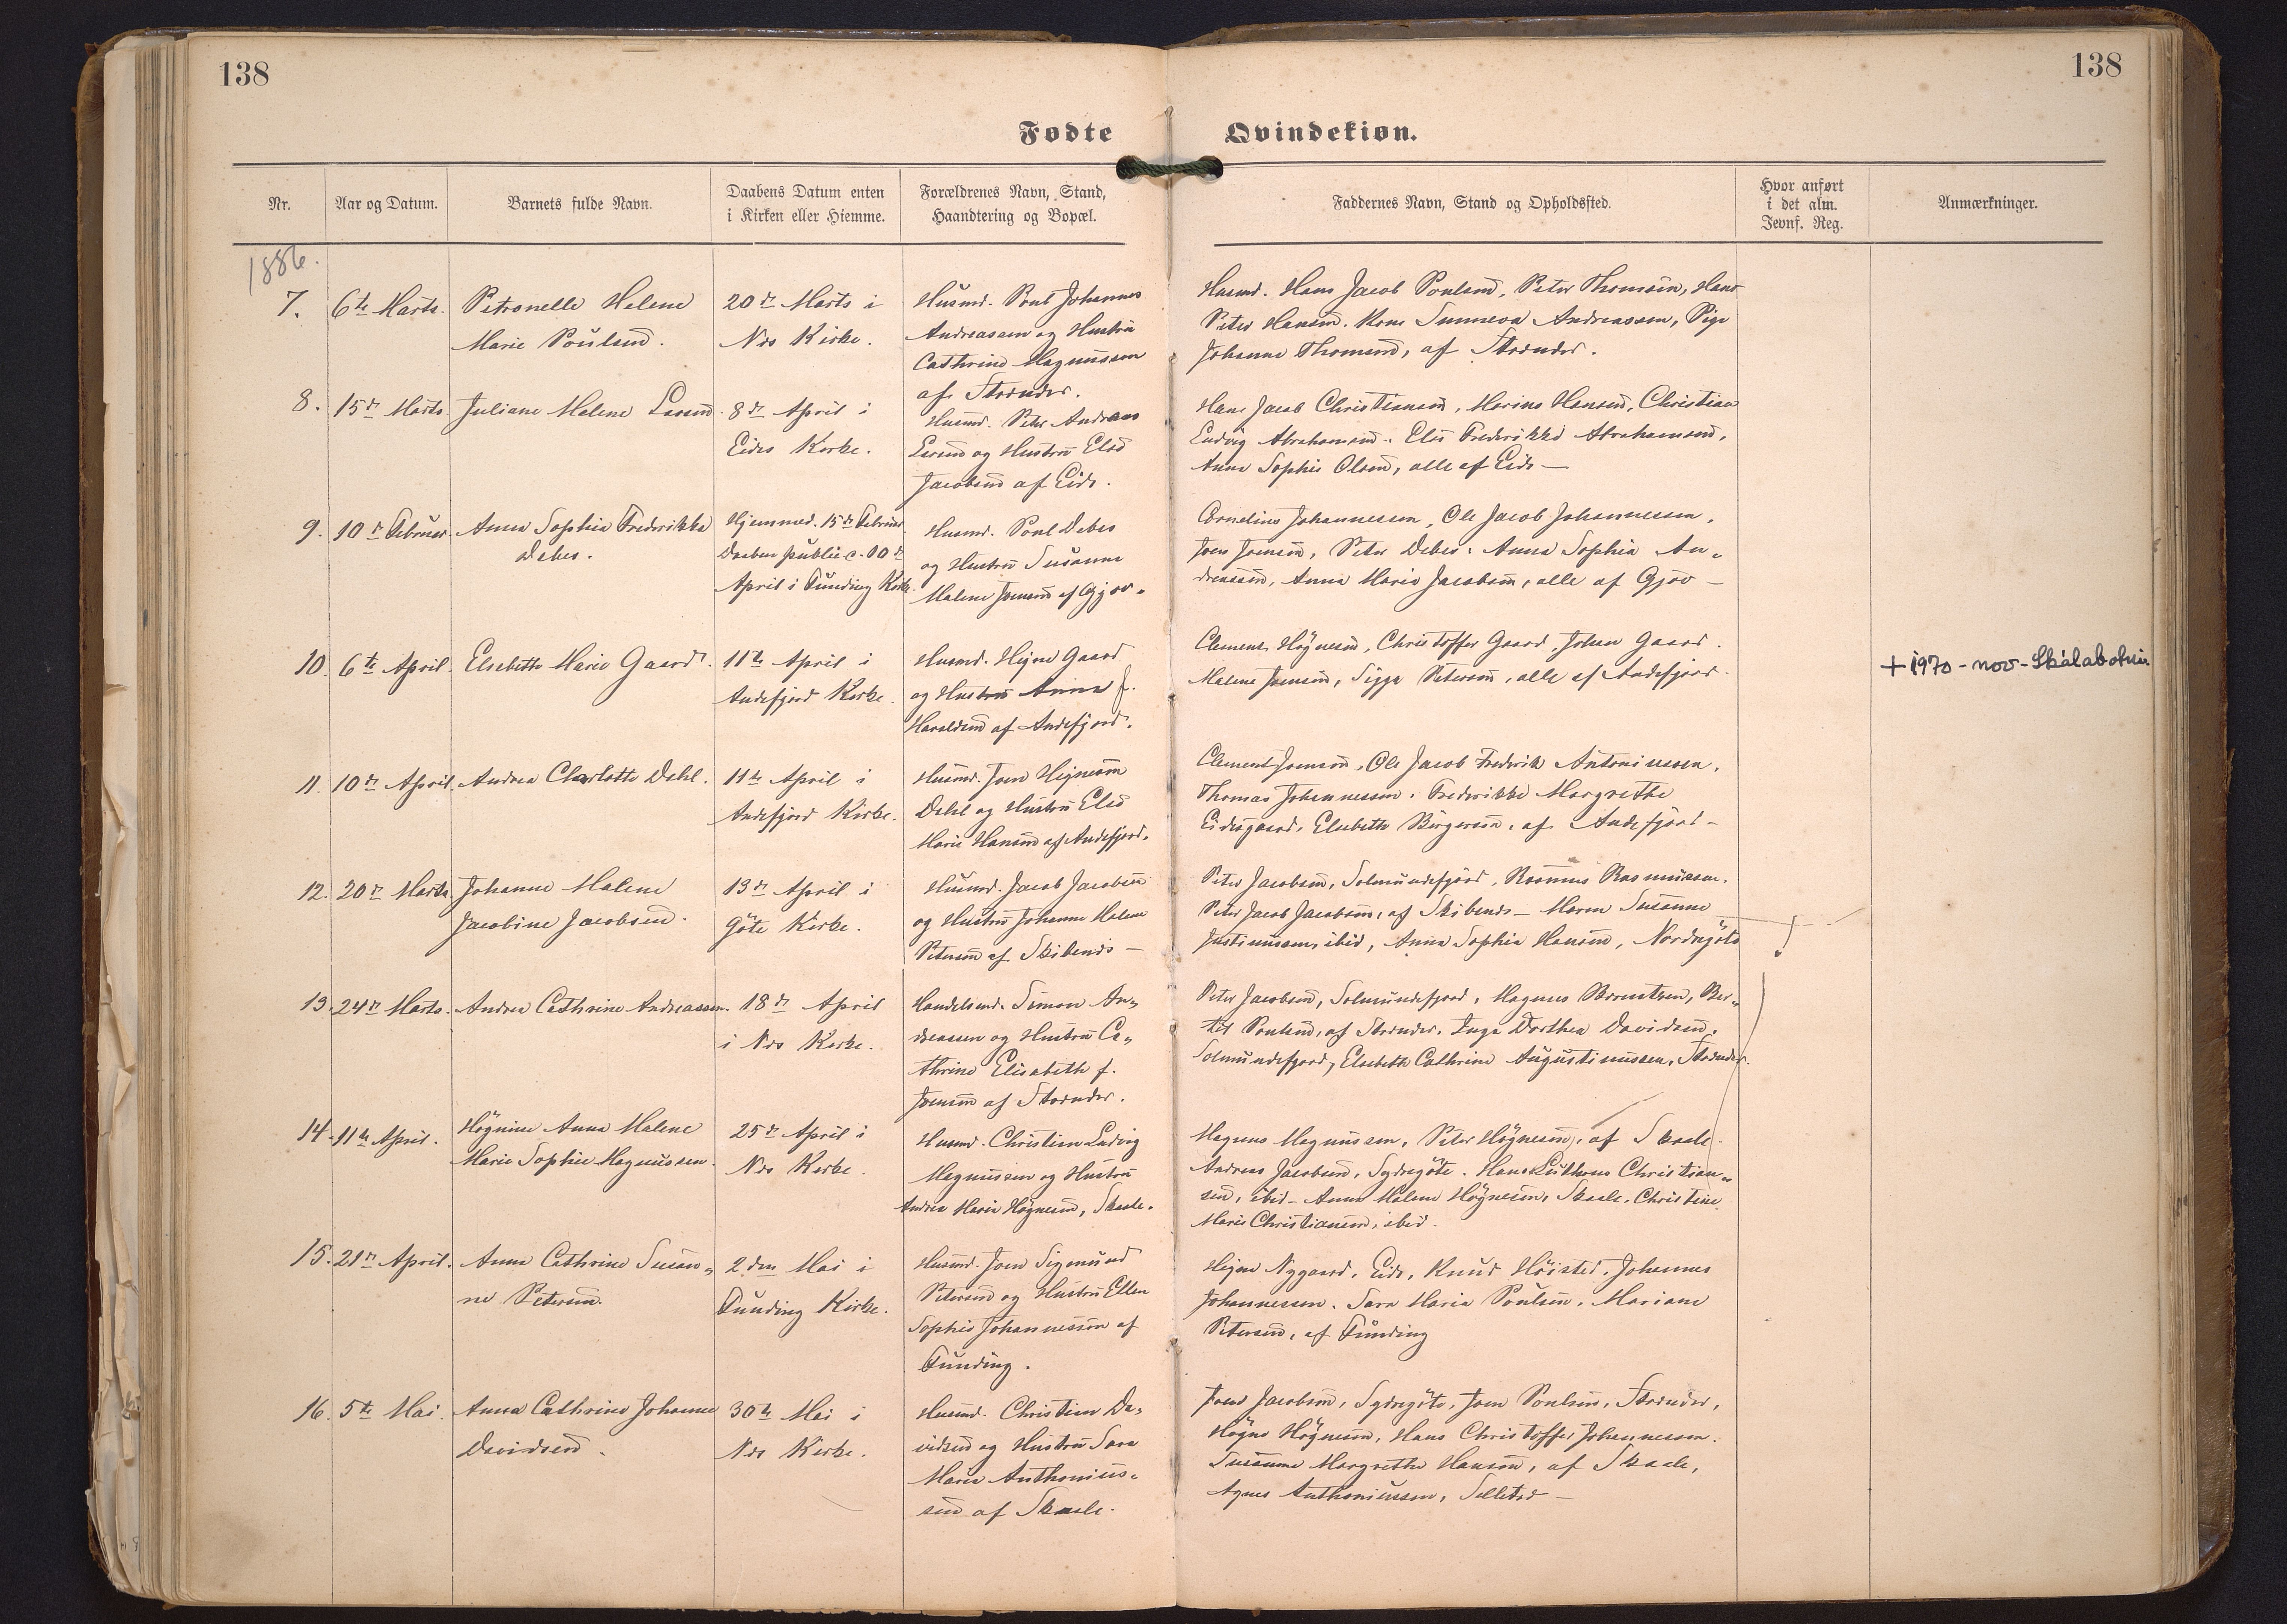 138
138
Fødte
Qvindekiøn.
Nr.
Aar og Datum.
Barnets fulde Navn.
Daabens Datum enten
i Kirken eller Hiemme.
Forældrenes Navn, Stand,
Haandtering og Bopæl.
Faddernes Navn, Stand og Opholdssted.
Hvor anført
i det alm.
Jevnf. Reg.
Anmærkninger.
1886.
7.
6te Marts.
Petronelle Helene
Marie Poulsen.
20de Marts i
Næs Kirke.
Husmd. Poul Johannes
Andreassen og Hustru
Cathrine Magnussen
af Strænder.
Husmd. Hans Jacob Poulsen, Peter Thomsen, Hans
Peter Hansen. Kone Sunneva Andreassen, Pige
Johanne Thomsen, af Strænder.
8.
15de Marts.
Juliane Malene Larsen.
8de April i
Eides Kirke.
Husmd. Peter Andreas
Larsen og Hustru Else
Jacobsen af Eide.
Hans Jacob Christiansen, Marius Hansen, Christian
Ludvig Abrahamsen. Else Frederikke Abrahamsen,
Anna Sophie Olsen, alle af Eide —
9.
10de Februar.
Anna Sophia Frederikka
Debes.
Hjemmed. 15de Februar
Daaben public. 10de
April i Funding Kirke.
Husmd. Poul Debes
og Hustru Susanne
Malene Joensen af Gjov.
Cornelius Johannessen, Ole Jacob Johannessen,
Joen Joensen, Peter Debes. Anna Sophia An-
dreassen, Anna Maria Jacobsen, alle af Gjov —
10.
6te April.
Elsebeth Marie Gaard.
11te April i
Andefjord Kirke.
Husmd. Hejne Gaard
og Hustru Anna f.
Haraldsen af Andefjord.
Clemens Högnesen, Christoffer Gaard, Johan Gaard.
Malene Joensen, Sigga Petersen, alle af Andefjord.
+ 1970 - nov - Skálabotni
11.
10de April.
Andrea Charlotte Dahl.
11te April i
Andefjord Kirke.
Husmd. Joen Hejnesen
Dahl og Hustru Else
Marie Hansen af Andefjord.
Clement Joensen, Ole Jacob Frederik Antoniussen,
Thomas Johannessen. Frederikke Margrethe
Eidesgaard, Elsebeth Birgersen, af Andefjord —
12.
20de Marts.
Johanne Malene
Jacobine Jacobsen.
13de April i
Göte Kirke.
Husmd. Jacob Jacobsen
og Hustru Johanne Malene
Petersen af Skibenes —
Peter Jacobsen, Solmundefjord, Rasmus Rasmussen.
Peter Jacob Jacobsen, af Skibenes — Maren Susanne
Justinussen, ibid, Anna Sophia Hansen, Nordregöte
13.
24de Marts.
Andrea Cathrine Andreassen.
18de April
i Næs Kirke.
Handelsmd. Simon An-
dreassen og Hustru Ca-
thrine Elisabeth f.
Joensen af Strænder.
Peter Jacobsen, Solmundefjord, Magnus Berentsen, Ber-
tel Poulsen, af Strænder. Inga Dorthea Davidsen,
Solmundefjord, Elsebeth Cathrine Augustinussen, Strænder.
14.
11te April.
Högnine Anna Malene
Marie Sophie Magnussen.
25de April i
Næs Kirke.
Husmd. Christian Ludvig
Magnussen og Hustru
Andrea Marie Högnesen, Skaale.
Magnus Magnussen, Peter Högnesen, af Skaale.
Andreas Jacobsen, Sydregöte. Hans Lutherus Christian-
sen, ibid — Anna Malene Högnesen, Skaale. Christine
Marie Christiansen, ibid.
15.
21de April.
Anna Cathrine Susan-
ne Petersen.
2den Mai i
Funding Kirke.
Husmd. Joen Sigmund
Petersen og Hustru Ellen
Sophie Johannessen af
Funding.
Hejne Nygaard, Eide, Knud Höisted. Johannes
Johannessen. Sara Maria Poulsen. Mariane
Petersen, af Funding
16.
5te Mai.
Anna Cathrine Johanne
Davidsen.
30te Mai i
Næs Kirke.
Husmd. Christian Da-
vidsen og Hustru Sara
Marie Anthonius-
sen af Skaale.
Joen Jacobsen, Sydregöte, Joen Poulsen, Strænder,
Högne Högnesen, Hans Christoffer Johannessen.
Susanne Margrethe Hansen, af Skaale,
Agnes Anthoniussen, Selletræ —